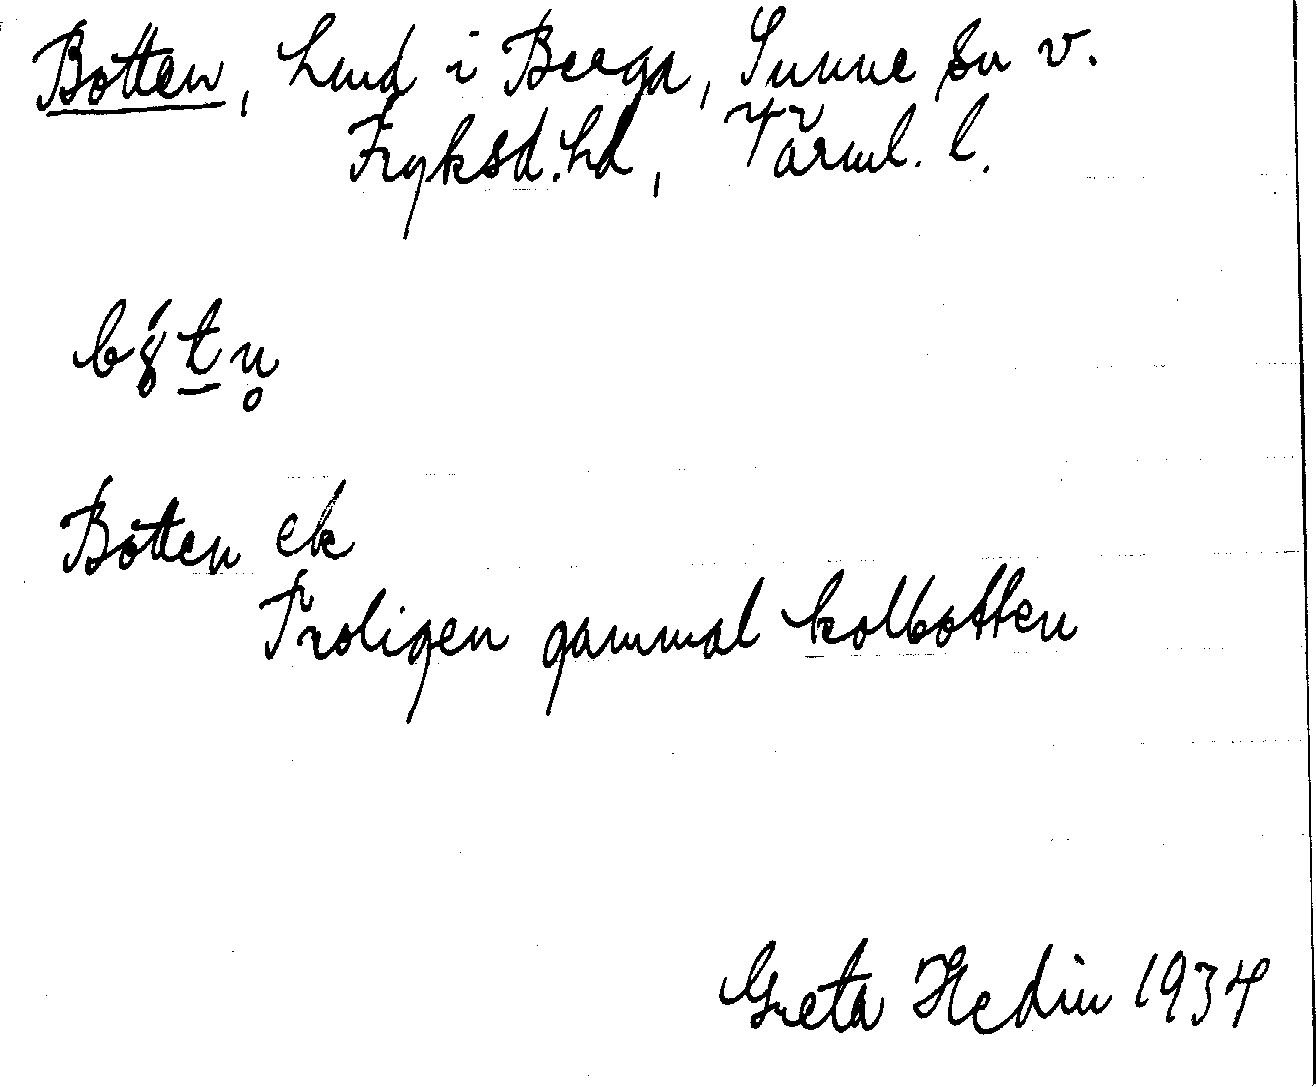 Botten, hmd i Berga, Sunne sn v.
Fryksd. hd, Värml. l.
Botten ek
Troligen gammal kolbotten
Greta Hedin 1934